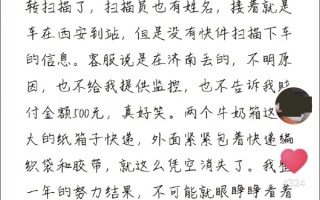 转扫描了，扫描员也有姓名，接着就是
车在西安到站，但是没有快件扫描下车
的信息。客服说是在济南丢的，不明原
因，也不给我提供监控，也不告诉我赔
付金额500元，真好笑。两个牛奶箱这
大的纸箱子快递，外面紧紧包着快递编
织袋和胶带，就这么凭空消失了。我
一年的努力结果，不可能就眼睁睁看着
324